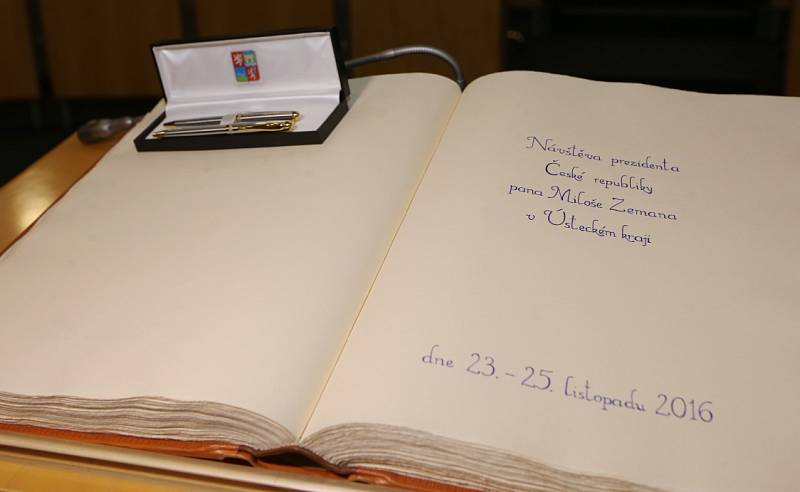 Návštěva prezidenta
České republiky
pana Miloše Zemana
v Ústeckém kraji
dne 23. - 25. listopadu 2016